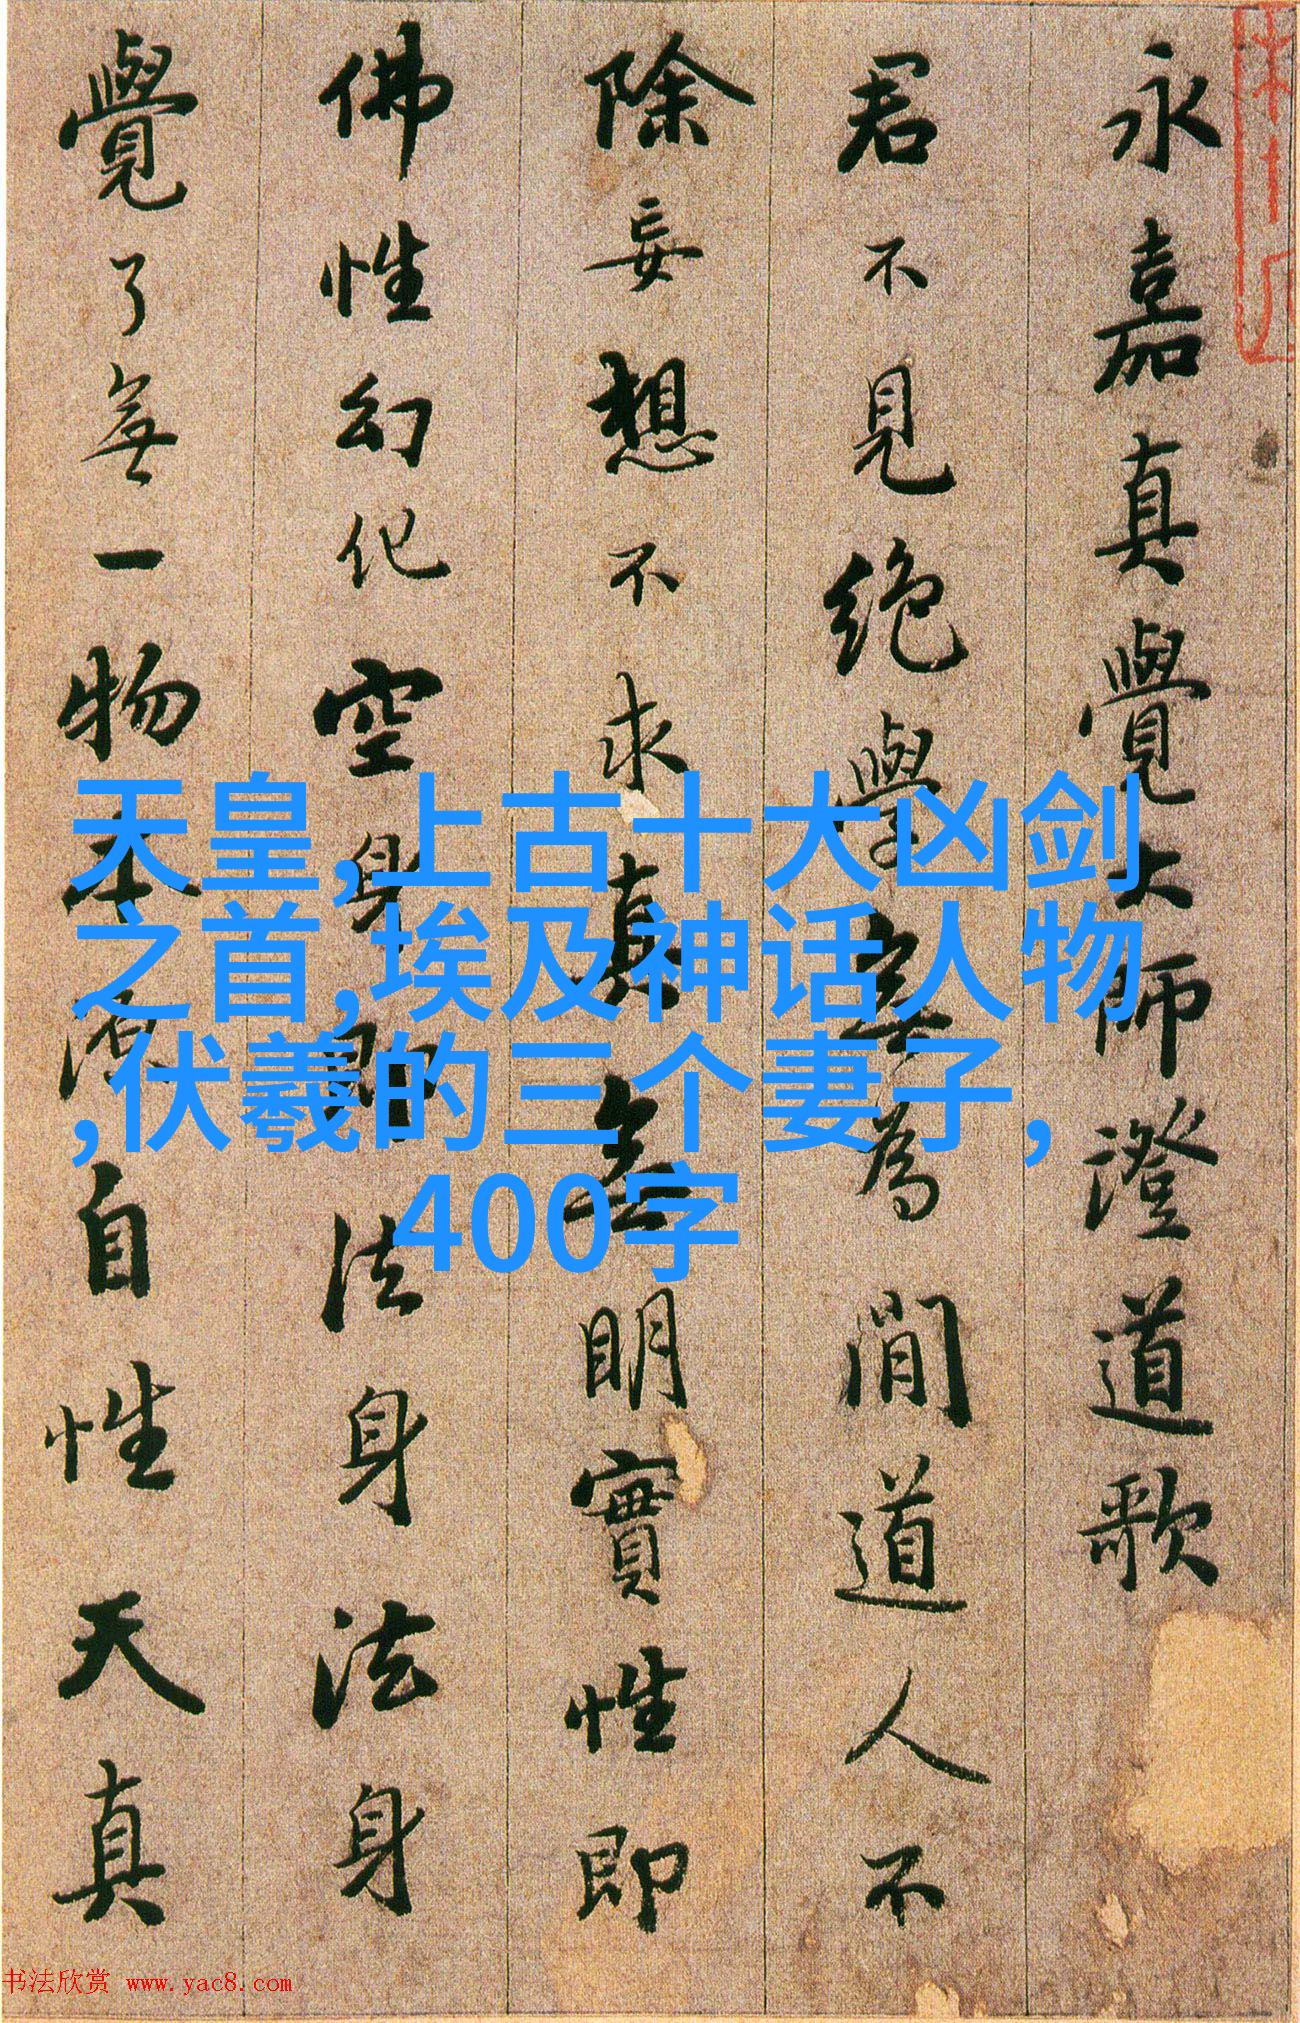 永嘉真覺大师澄道歌
君不見絶學無為閒道人不
除妄想不求真無明實性即
佛性幻化空身即法身法身
覺了無一物本源自性天真
天皇,上古十大凶剑
之首,埃及神话人物
,伏羲的三个妻子,
400字
书法欣赏 www.yac8.com